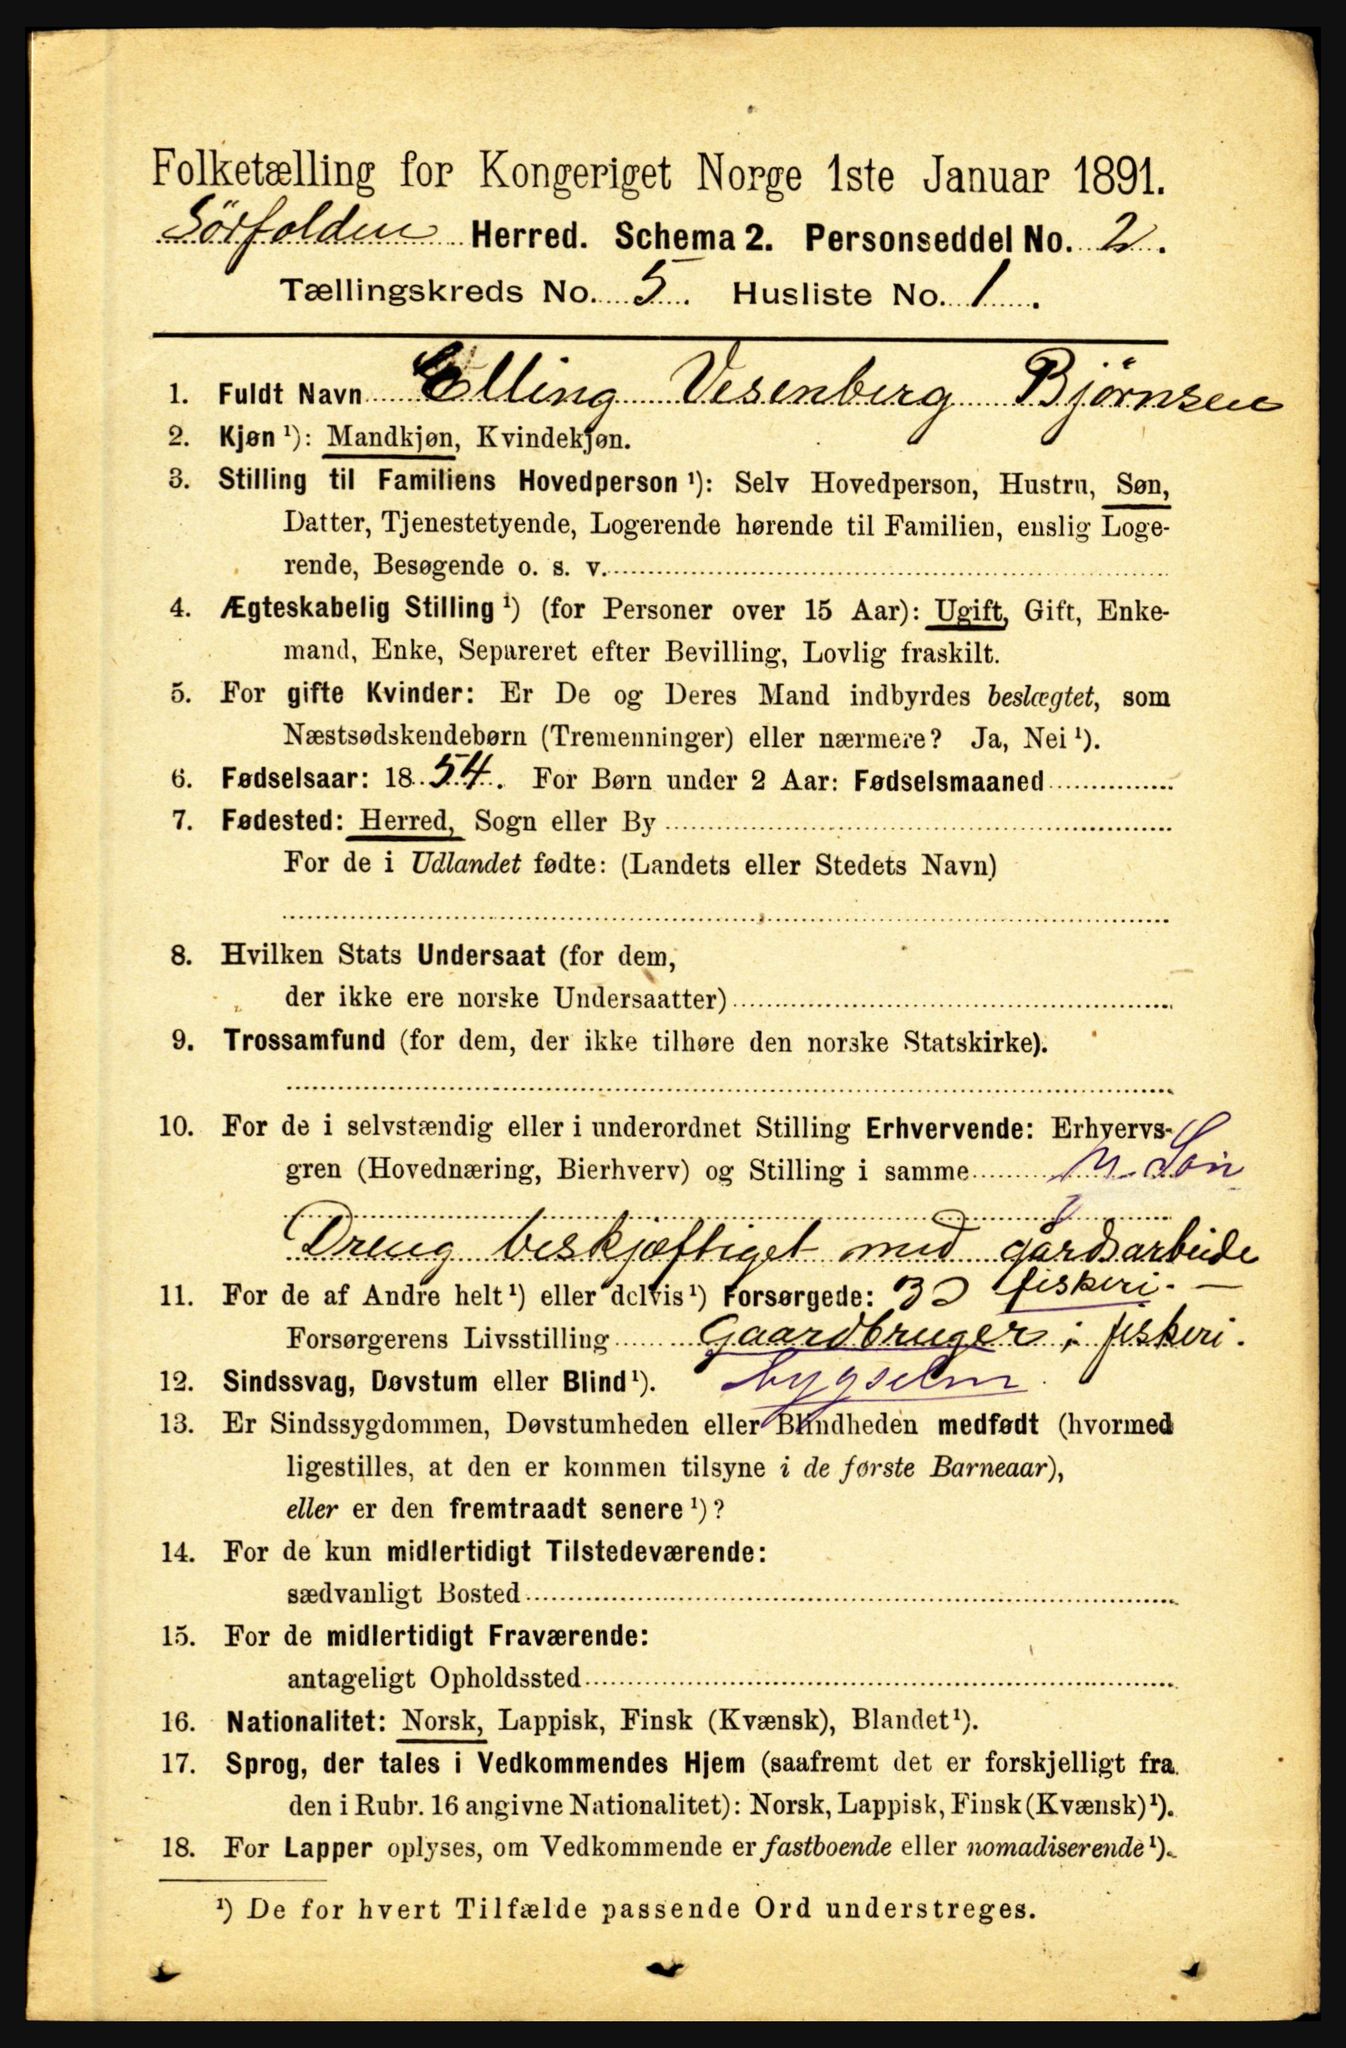 Folketælling for Kongeriget Norge 1ste Januar 1891.
Sörfolden Herred. Schema 2. Personseddel No. 2.
Tællingskreds No. 5. Husliste No. 1.
1. Fuldt Navn Elling Vesenberg Bjørnsen
2. Kjøn ¹): Mandkjøn, Kvindekjøn.
3. Stilling til Familiens Hovedperson ¹): Selv Hovedperson, Hustru, Søn,
Datter, Tjenestetyende, Logerende hørende til Familien, enslig Loge-
rende, Besøgende o. s. v.
4. Ægteskabelig Stilling ¹) (for Personer over 15 Aar): Ugift, Gift, Enke-
mand, Enke, Separeret efter Bevilling, Lovlig fraskilt.
5. For gifte Kvinder: Er De og Deres Mand indbyrdes beslægtet, som
Næstsødskendebørn (Tremenninger) eller nærmere? Ja, Nei ¹).
6. Fødselsaar: 1854. For Børn under 2 Aar: Fødselsmaaned
7. Fødested: Herred, Sogn eller By
For de i Udlandet fødte: (Landets eller Stedets Navn)
8. Hvilken Stats Undersaat (for dem,
der ikke ere norske Undersaatter)
9. Trossamfund (for dem, der ikke tilhøre den norske Statskirke).
10. For de i selvstændig eller i underordnet Stilling Erhvervende: Erhvervs-
gren (Hovednæring, Bierhverv) og Stilling i samme Søn
Dreng beskjæftiget med gårdsarbeide
fiskeri. —
11. For de af Andre helt ¹) eller delvis ¹) Forsørgede:
Forsørgerens Livsstilling Gaardbruger i fiskeri.
12. Sindssvag, Døvstum eller Blind ¹). bygselm
13. Er Sindssygdommen, Døvstumheden eller Blindheden medfødt (hvormed
ligestilles, at den er kommen tilsyne i de første Barneaar),
eller er den fremtraadt senere ¹)?
14. For de kun midlertidigt Tilstedeværende:
sædvanligt Bosted
15. For de midlertidigt Fraværende:
antageligt Opholdssted
16. Nationalitet: Norsk, Lappisk, Finsk (Kvænsk), Blandet ¹).
17. Sprog, der tales i Vedkommendes Hjem (saafremt det er forskjelligt fra
den i Rubr. 16 angivne Nationalitet): Norsk, Lappisk, Finsk (Kvænsk) ¹).
18. For Lapper oplyses, om Vedkommende er fastboende eller nomadiserende ¹).
¹) De for hvert Tilfælde passende Ord understreges.